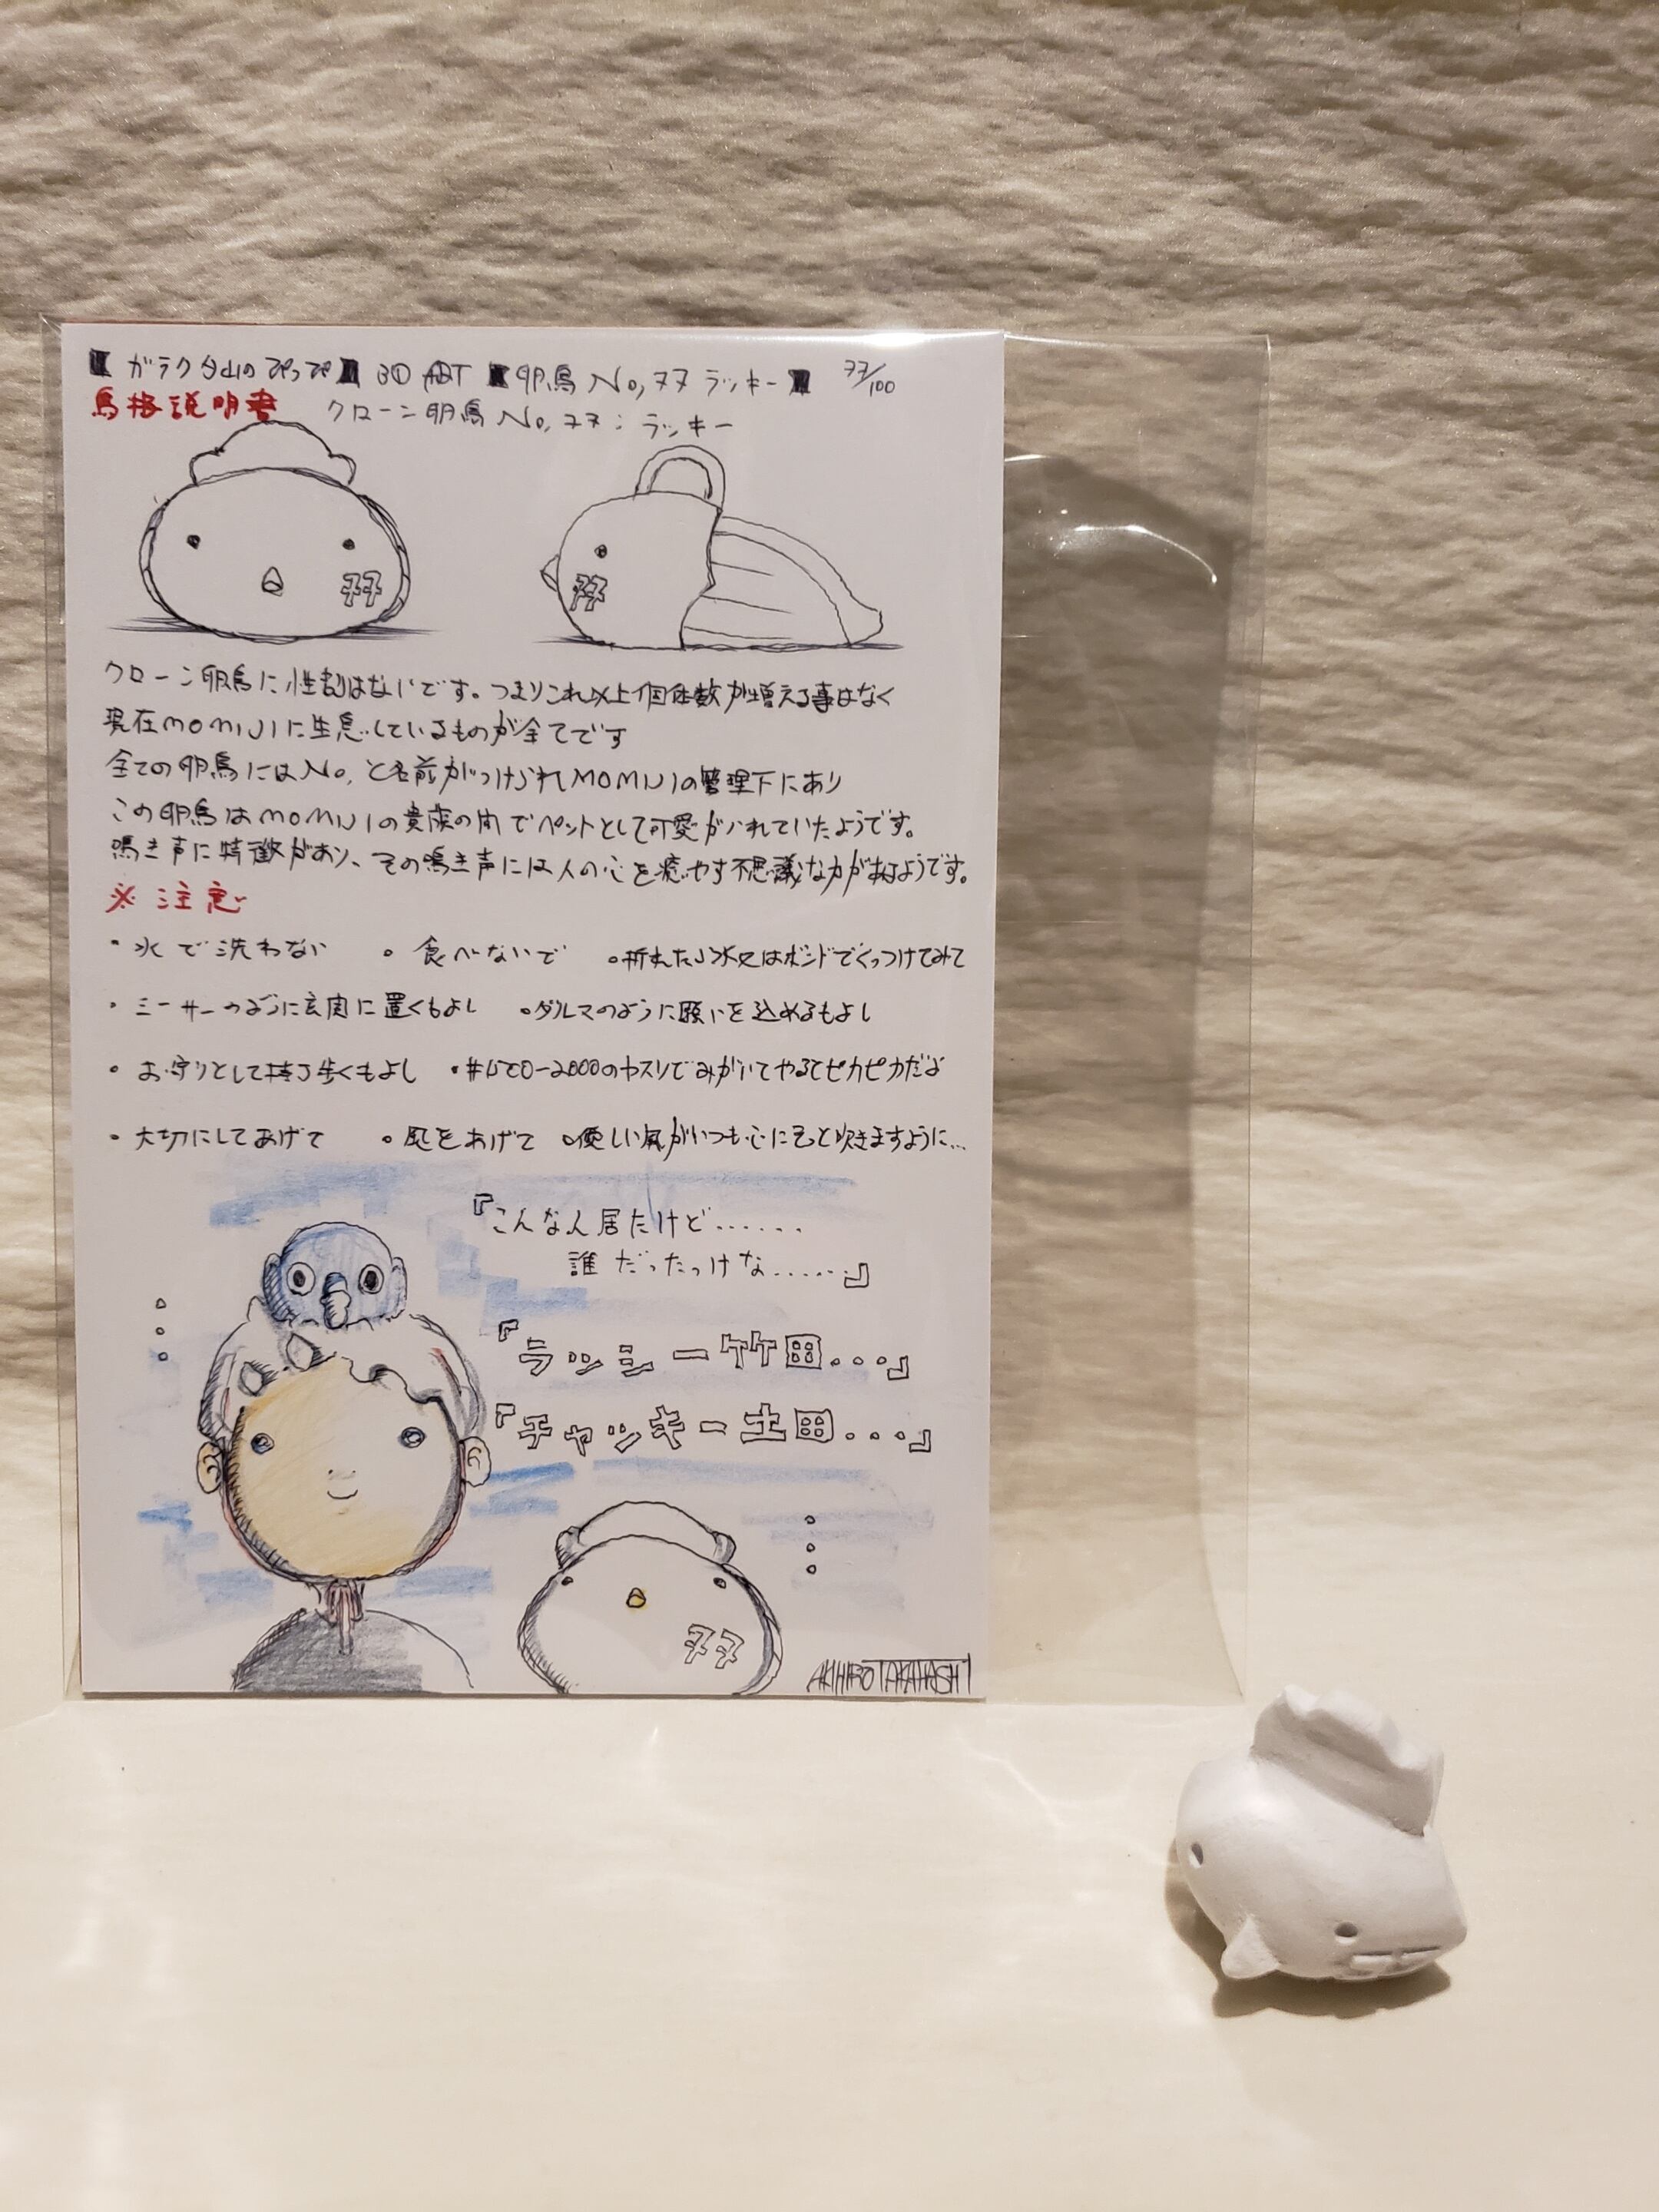 【ガラクタ山のぷっぷ】3D ART【卵鳥 No,77 ラッキー】 77/100
鳥格説明書 クローン卵鳥 No,77:ラッキー
77
77
クローン卵鳥に性別はないです。つまりこれ以上個体数が増える事はなく
現在MOMIJIに生息しているものが全てです
全ての卵鳥にはNo,と名前がつけられMOMIJIの管理下にあり
この卵鳥はMOMIJIの貴族の間でペットとして可愛がられていたようです。
鳴き声に特徴があり、その鳴き声には人の心を癒やす不思議な力が有るようです。
※注意
・水で洗わない ・食べないで ・折れたり はボンドでくっつけてみて
・ミーサーのように玄関に置くもよし ・ダルマのように願いを込めるもよし
・お守りとして持ち歩くもよし ・ のヤスリでみがいてやるとピカピカだよ
・大切にしてあげて ・ をあげて ・優しい風がいつも心にそっと吹きますように…
『こんな人居たけど......
誰だったっけな......』
『ラッシー竹田...』
『チャッキー土田...』
77
AKIHIRO TAKAHASHI